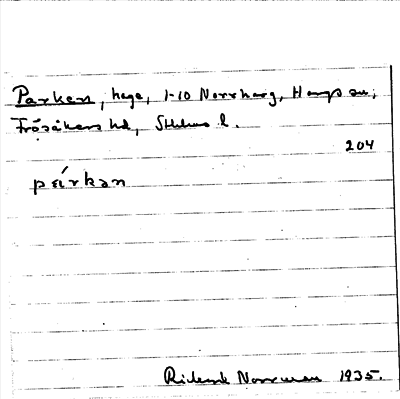 Parken, hage, 1-10 Norrharg, Hargs sn,
Frösåkers hd, Sthlms l.
204
párkan
Rickard Norrman 1935.